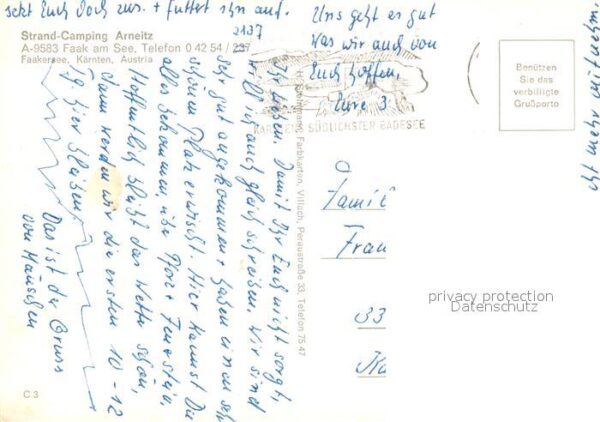 Strand-Camping Arneitz
A-9583 Faak am See, Telefon 0 42 54 / 237
2137
Faakersee, Kärnten, Austria
Ihr Lieben. Damit Ihr Euch nicht sorgt,
will ich auch gleich schreiben. Wir sind
sehr gut angekommen + haben einen sehr
schönen Platz erwischt. Hier kannst Du
alles bekommen, über Pfor + Feuerstein.
Hoffentlich bleibt das Wetter schön,
dann werden wir die ersten 10 - 12
Tg hier bleiben.
Das ist der Gruss
von Mäuschen
setzt Euch doch zus. + futtert ihn auf.
Uns geht es gut
Was wir auch von
Euch hoffen,
Eure 3
SÜDLICHSTER BADESEE
Farbkarton, Villach, Peraustraße 33, Telefon 75 47
Benützen
Sie das
verbilligte
Grußporto
Famil
Frau
33
privacy protection
Datenschutz
C 3